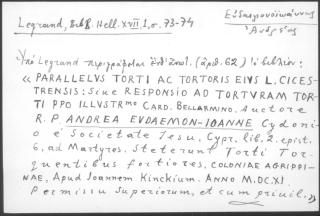 Legrand, Βιβ. Hell. XVII, I, σ. 73-74
Εὐδαιμονοϊωάννης
Ἀνδρέας
Ὑπὸ Legrand περιγράφεται (ἀριθ. 62) τὸ βιβλίον:
« PARALLELVS TORTI AC TORTORIS EIVS L. CICES-
TRENSIS: Siue RESPONSIO AD TORTVRAM TOR-
TI PPO ILLUSTRmo CARD. BELLARMINO, Auctore
R. P. ANDREA EVDAEMON-IOANNE Cydoni-
o è Societate Iesu, Cypr. lib. 2. epist.
6, ad Martyres. Steterunt Torti Tor-
quentibus fortiores, COLONIAE AGRIPPI-
NAE, Apud Ioannem Kinckium. ANNO M.DC.XI.
Permissu Superiorum, et cum priuil. »